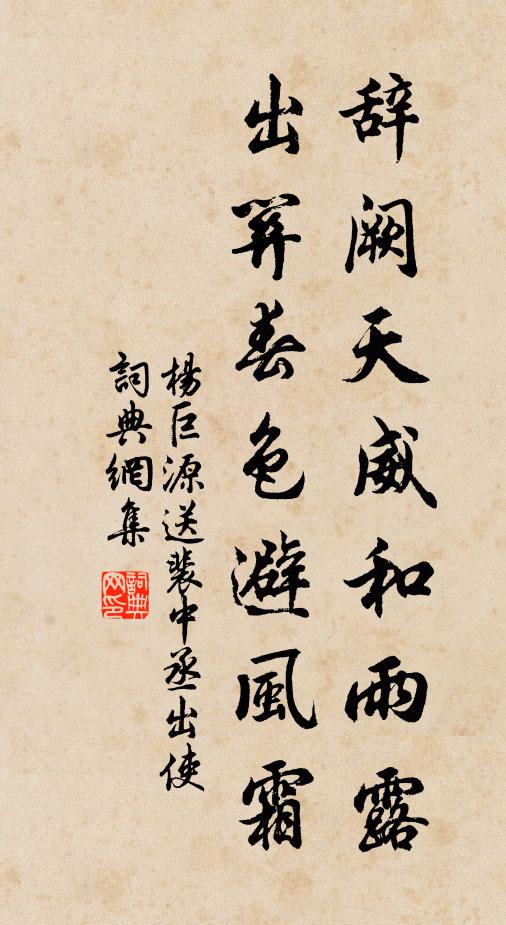 辞闕天威和雨露
出關春色避風霜
楊巨源送裴中丞出使
詞典網集
詞典网印